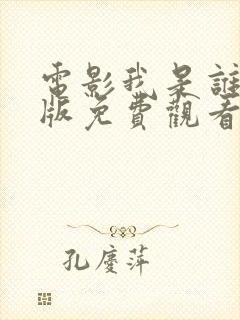 電影我是誰
版免費觀看
孔慶萍